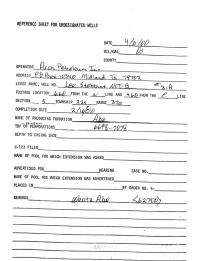 REFERENCE SHEET FOR UNDESIGNATED WELLS
DATE 4/6/00
OIL/GAS
COUNTY
OPERATOR Arch Petroleum Inc
ADDRESS P O Box 10340 Midland Tx 79702
LEASE NAME, WELL NO. Leo Stephens NCT-B #3-A
FOOTAGE LOCATION 660 FROM THE N LINE AND 660 FROM THE E LINE
SECTION 5 TOWNSHIP RANGE
COMPLETION DATE
NAME OF PRODUCING FORMATION Abo
TOP OF PERFORATIONS
DEPTH TO CASING SHOE
C-123 FILED
NAME OF POOL FOR WHICH EXTENSION WAS ASKED
ADVERTISED FOR HEARING CASE NO.
NAME OF POOL FOR WHICH EXTENSION WAS ADVERTISED
PLACED IN BY ORDER NO. R-
REMARKS Wantz Abo (62700)